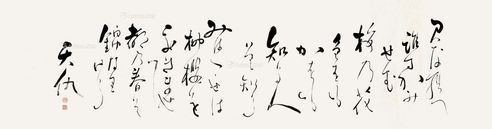 君ならて
誰にかみ
せむ
梅乃花
色をも
かをも
知る人
そ知る
みわたせは
柳櫻を
こきませて
都乃春そ
錦なりける
天仇